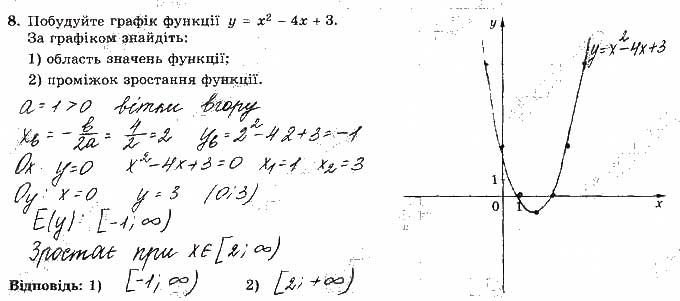 8. Побудуйте графік функції y = x² – 4x + 3.
За графіком знайдіть:
1) область значень функції;
2) проміжок зростання функції.
a = 1 > 0 вітки вгору
xв = - в/2a = 4/2 = 2 yв = 2² - 4 2 + 3 = -1
Ox: y=0 x² - 4x + 3 = 0 x₁ = 1 x₂ = 3
Oy: x = 0 y = 3 (0; 3)
E(y): [-1; ∞)
Зростає при x ∈ [2; ∞)
Відповідь: 1) [-1; ∞) 2) [2; +∞)
y
y = x² - 4x + 3
1
0 1 x